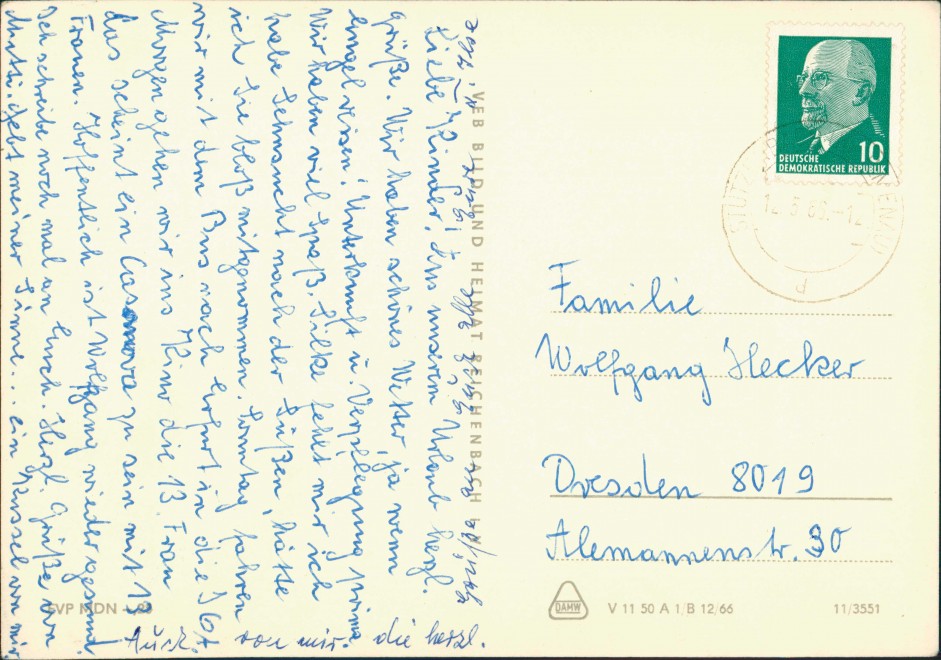 Liebe Kinder! Aus unserem Urlaub herzl.
Grüße. Wir haben schönes Wetter, ja wenn
Engel reisen! Unterkunft u. Verpflegung prima
Wir haben viel Spaß. Silke fehlt mir ich
habe Sehnsucht nach der Süßen, hätte
ich Sie bloß mitgenommen. Sonntag fahren
wir mit dem Bus nach Erfurt in die IGA
Morgen gehen wir ins Kino die 13. Frau
das scheint ein Casanova zu sein mit 13
Frauen. Hoffentlich ist Wolfgang wieder gesund.
Ich schreibe noch mal an Euch. Herzl. Grüße von
Mutti. Gebt meiner Sinne... ein Küssel von mir
Auch von mir die herzl.
VEB BILD UND HEIMAT REICHENBACH
EVP MDN
DEUTSCHE
DEMOKRATISCHE REPUBLIK
10
Familie
Wolfgang Hecker
Dresden 8019
Alemannenstr. 30
DAMW
V 11 50 A 1/B 12/66
11/3551